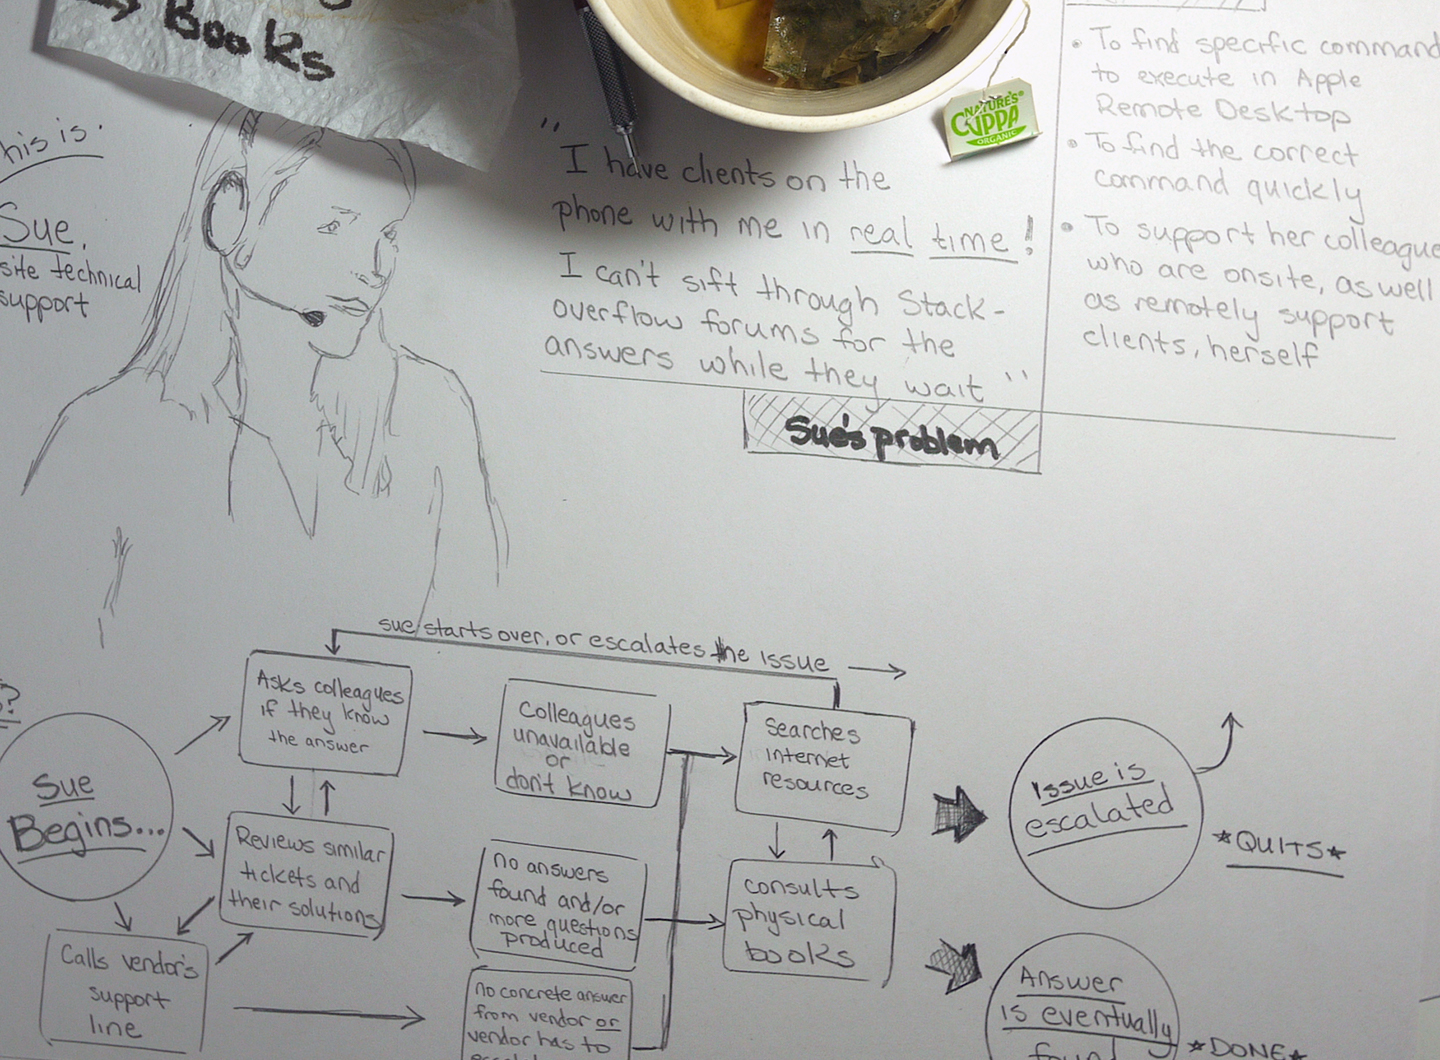 Books
This is:
Sue,
site technical
support
"
I have clients on the
phone with me in real time!
I can't sift through Stack-
overflow forums for the
answers while they wait "
Sue's problem
NATURE'S
CUPPA
ORGANIC
• To find specific command
to execute in Apple
Remote Desktop
• To find the correct
command quickly
• To support her colleague
who are onsite, as well
as remotely support
clients, herself
sue starts over, or escalates the issue
?
Sue
Begins...
Asks colleagues
if they know
the answer
Reviews similar
tickets and
their solutions
Calls vendor's
support
line
Colleagues
unavailable
or
don't know
no answers
found and/or
more questions
produced
no concrete answer
from vendor or
vendor has to
Searches
internet
resources
consults
physical
books
Issue is
escalated
*QUITS*
Answer
is eventually
found
*DONE*